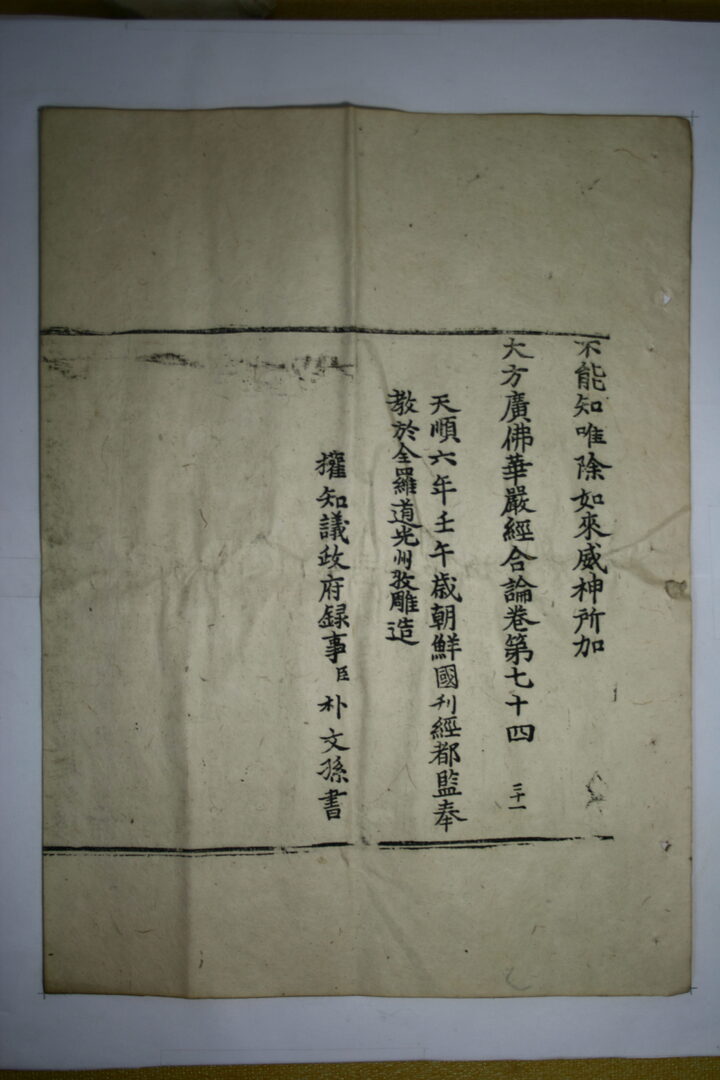 不能知唯除如來威神所加
大方廣佛華嚴經合論卷第七十四 三十一
天順六年壬午歲朝鮮國刊經都監奉
教於全羅道光州牧雕造
權知議政府錄事臣朴文孫書